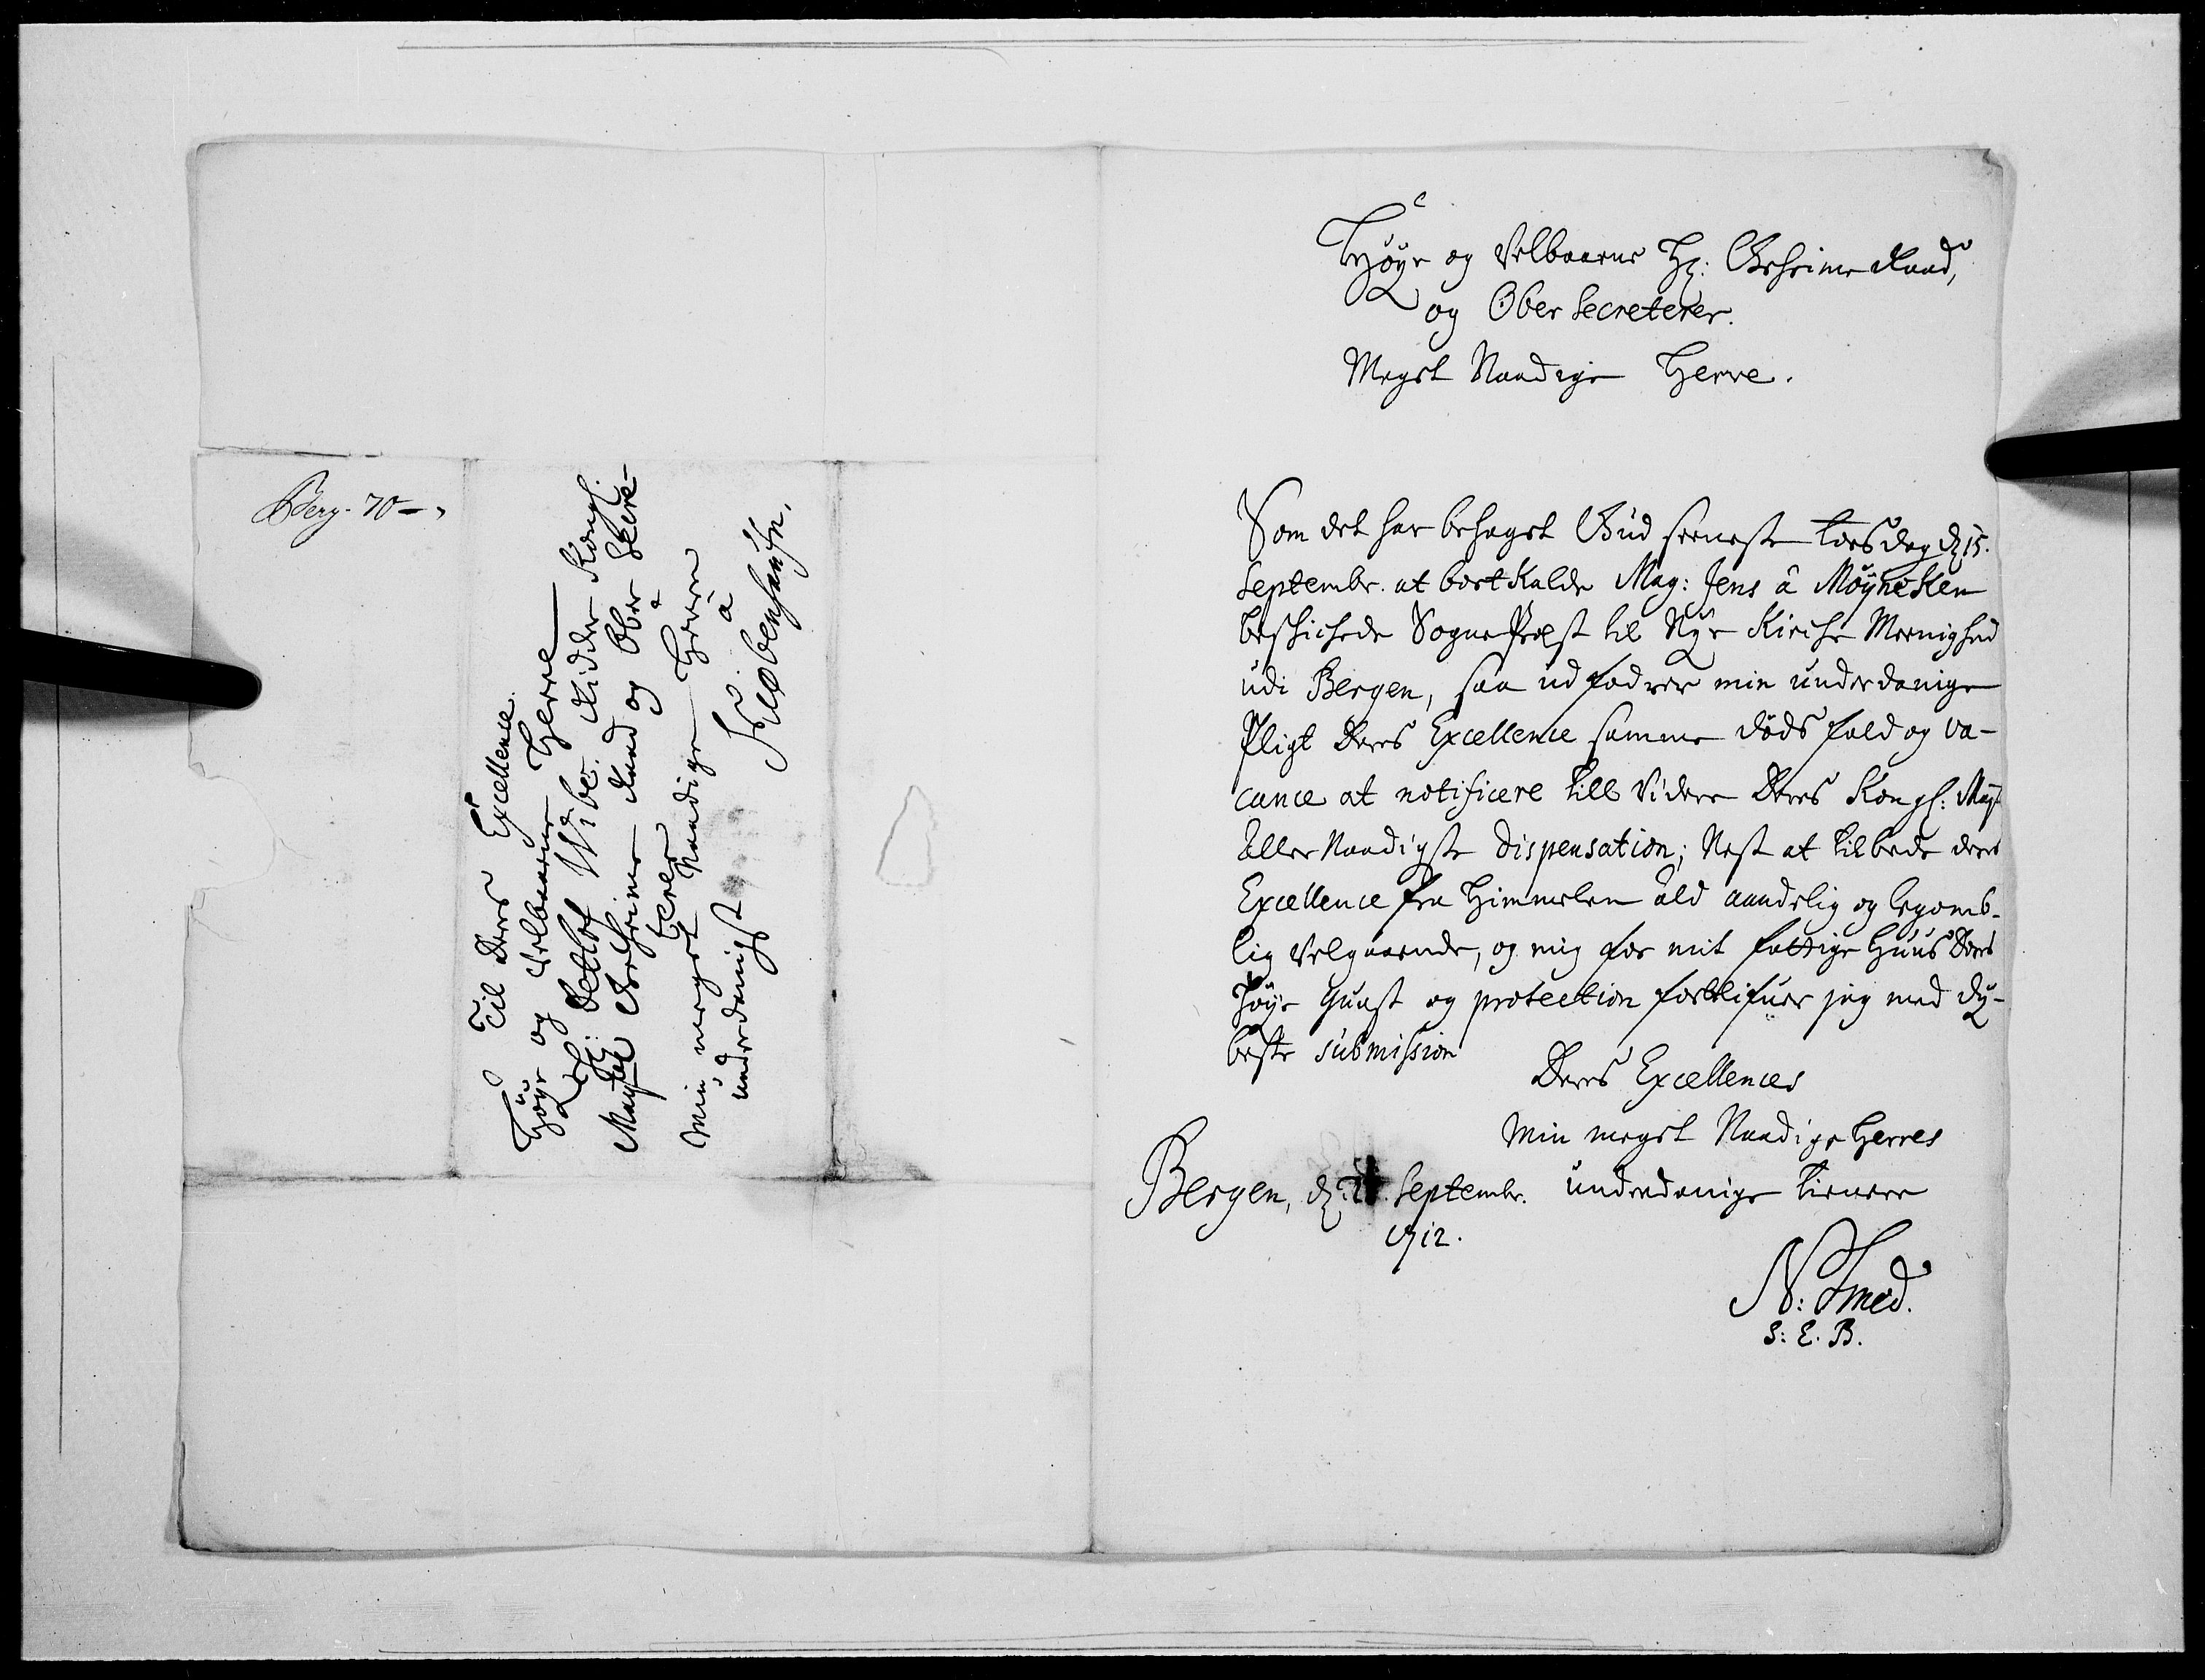 Berg. 70
Til Deres Excellence
Höye og Velbaarne Herre
Hr: Detlef Wibe. Ridder Kongl:
Maytz Geheime Raad og Ober Secre-
terer
Min meget Naadige Herre
underdanigst
à
Kiøbenhaufn.
Höye og Velbaarne Hr: Geheime Raad,
og Ober Secreterer.
Meget Naadige Herre.
Som det har behaget Gud seeneste Torsdag dn 15.
Septembr. at bortkalde Mag: Jens â Møÿnesken
beskichede Sogne Præst til Nÿe Kirche Meenighed
udi Bergen, saa udfodrer min underdanige
Pligt Deres Excellence samme döds fald og va-
cance at notificere till videre Deres Kongl: May
Aller Naadigste Dispensation; Nest at tilbede deres
Excellence fra Himmelen ald aandelig og legomb-
lig velgaaende, og mig for mit fattige Huus Deres
Höÿe Gunst og protection fortblifuer jeg med dÿ-
beste submission
Deres Excellences
Min meget Naadige Herres
underdanige tienere
Bergen, dn Septembr.
1712.
N: Smed.
S: E. B.